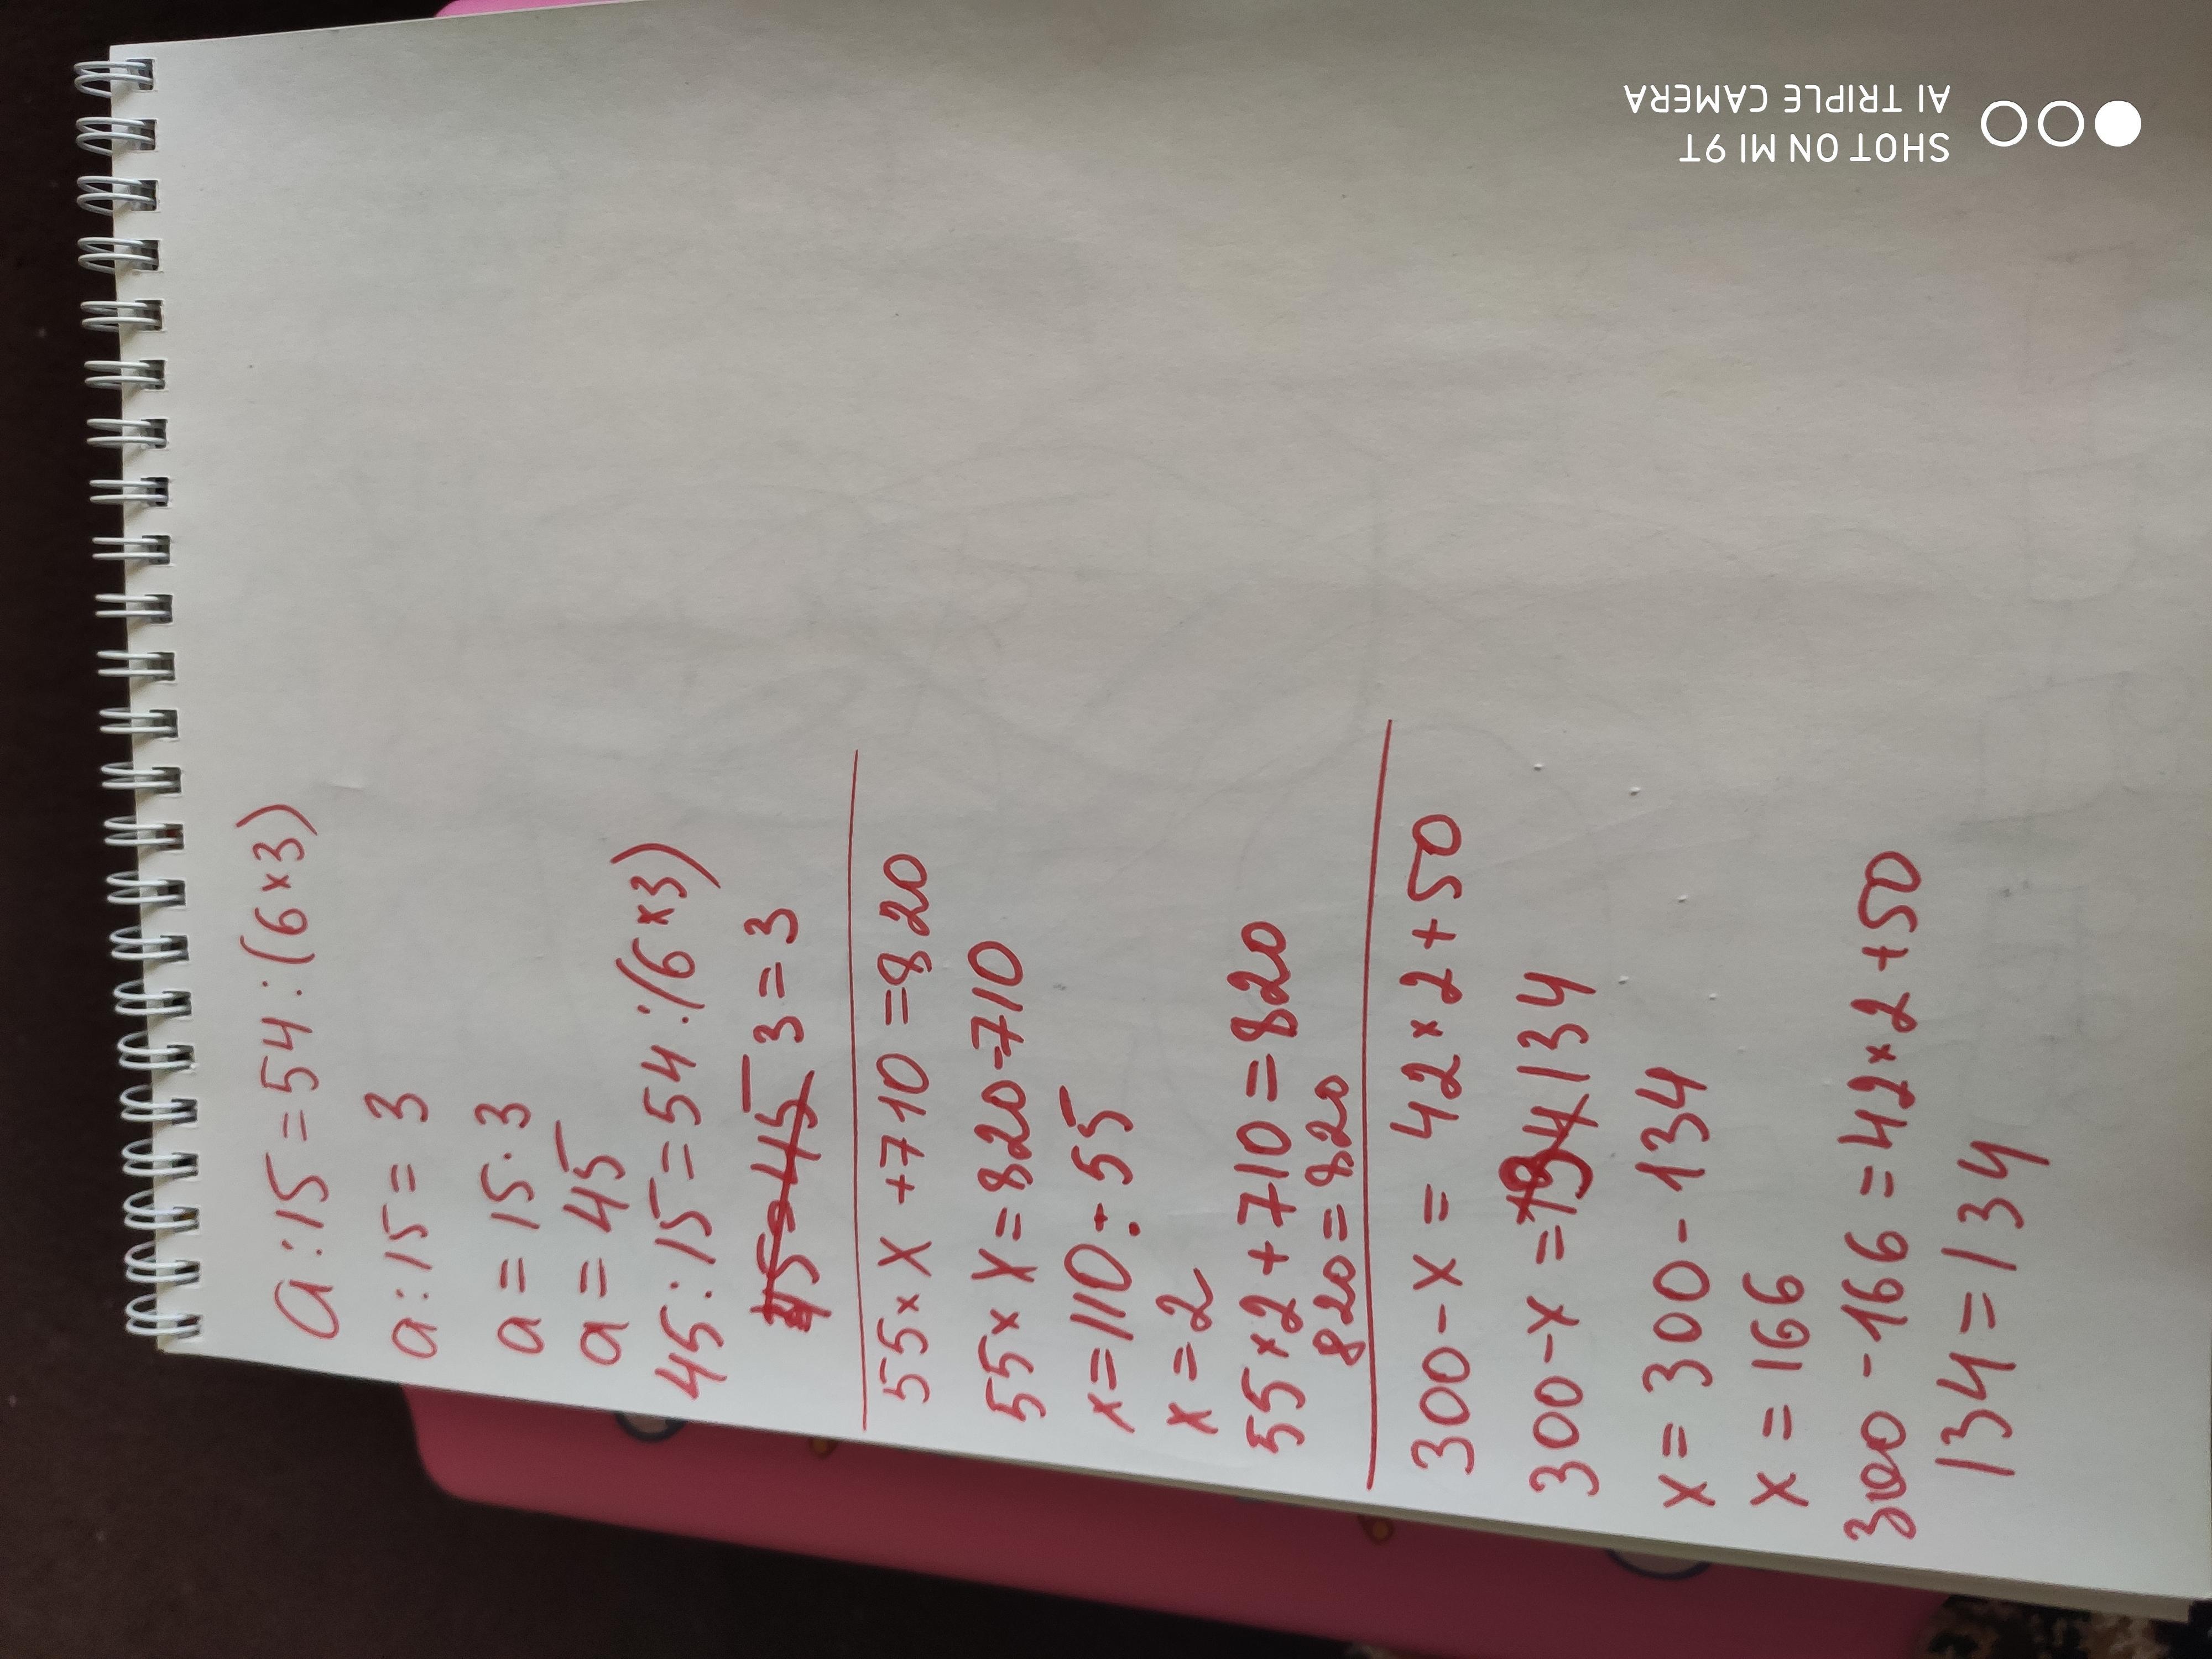 a:15=54:(6×3)
a:15=3
a=15·3
a=45
45:15=54:(6×3)
45=45 3=3
55×x+710=820
55×x=820-710
x=110:55
x=2
55×2+710=820
820=820
300-x=42×2+50
300-x=134
x=300-134
x=166
300-166=42×2+50
134=134
SHOT ON MI 9T
AI TRIPLE CAMERA